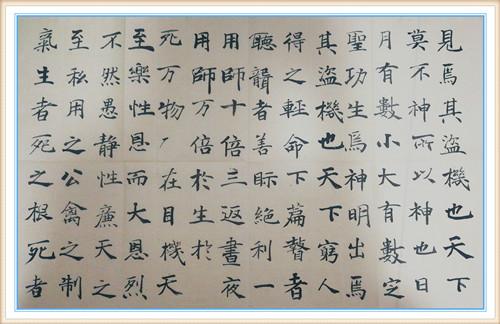 見焉其盜機也天下
莫不神所以神也日
月有數小大有數定
聖功生焉神明出焉
其盜機也天下窮人
得之輕命下篇瞽者
聽聾者善眎絕利一
用師十倍三返晝夜
用師万倍於生於
死万物在目機天
至樂性恩而大恩烈
不然愚靜性廉天之
至私用之公禽之制
氣生者死之根死者